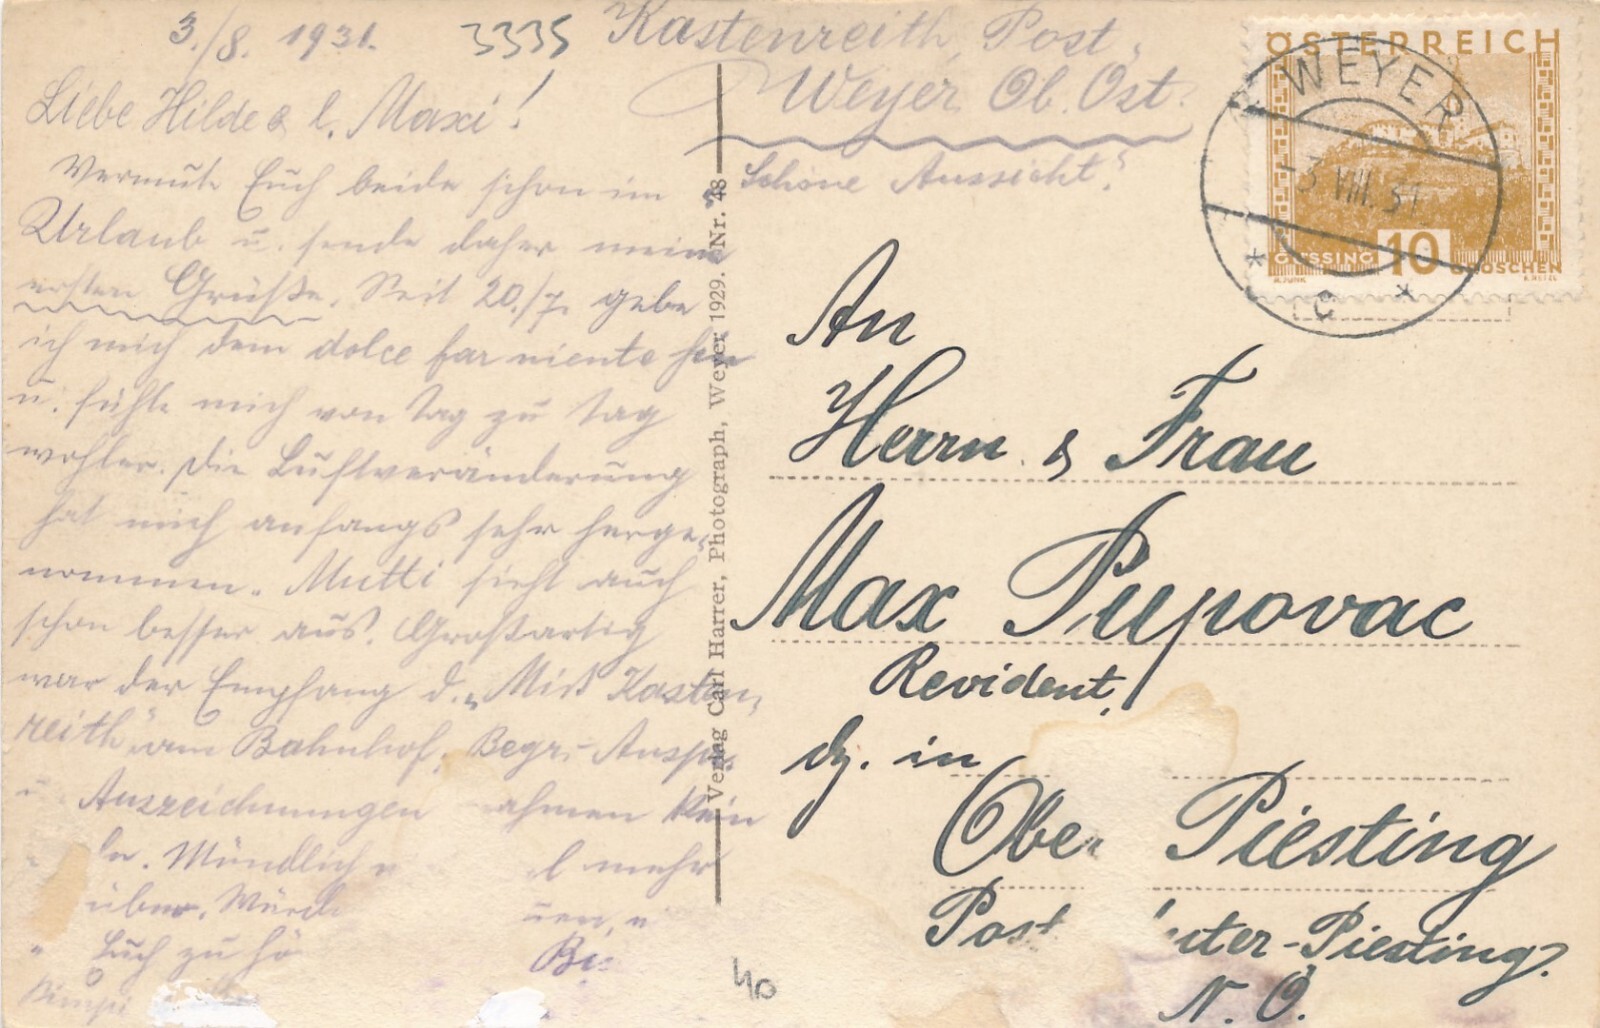 3./8. 1931.
3335
Kastenreith, Post
Weyer Ob. Öst.
Schöne Aussicht!
Liebe Hilde & l. Maxi!
Vermute Euch beide schon im
Urlaub u. sende daher meine
ersten Grüße. Seit 20./7. gebe
ich mich dem dolce far niente hin
u. fühle mich von Tag zu Tag
wohler. Die Luftveränderung
hat mich anfangs sehr herge-
nommen. Mutti sieht auch
schon besser aus. Großartig
war der Empfang d. „Miss Kasten-
reith" am Bahnhof. Begr.-Anspr.
u. Auszeichnungen nahmen kein
Mündlich mehr
über. Würde
Euch zu
Verlag Carl Harrer, Photograph, Weyer 1929. Nr. 48
ÖSTERREICH
GÜSSING 10 GROSCHEN
WEYER
-3.VIII.31
* c *
An
Herrn & Frau
Max Pupovac
Revident,
dz. in
Ober Piesting
Post Unter-Piesting,
N. Ö.
40